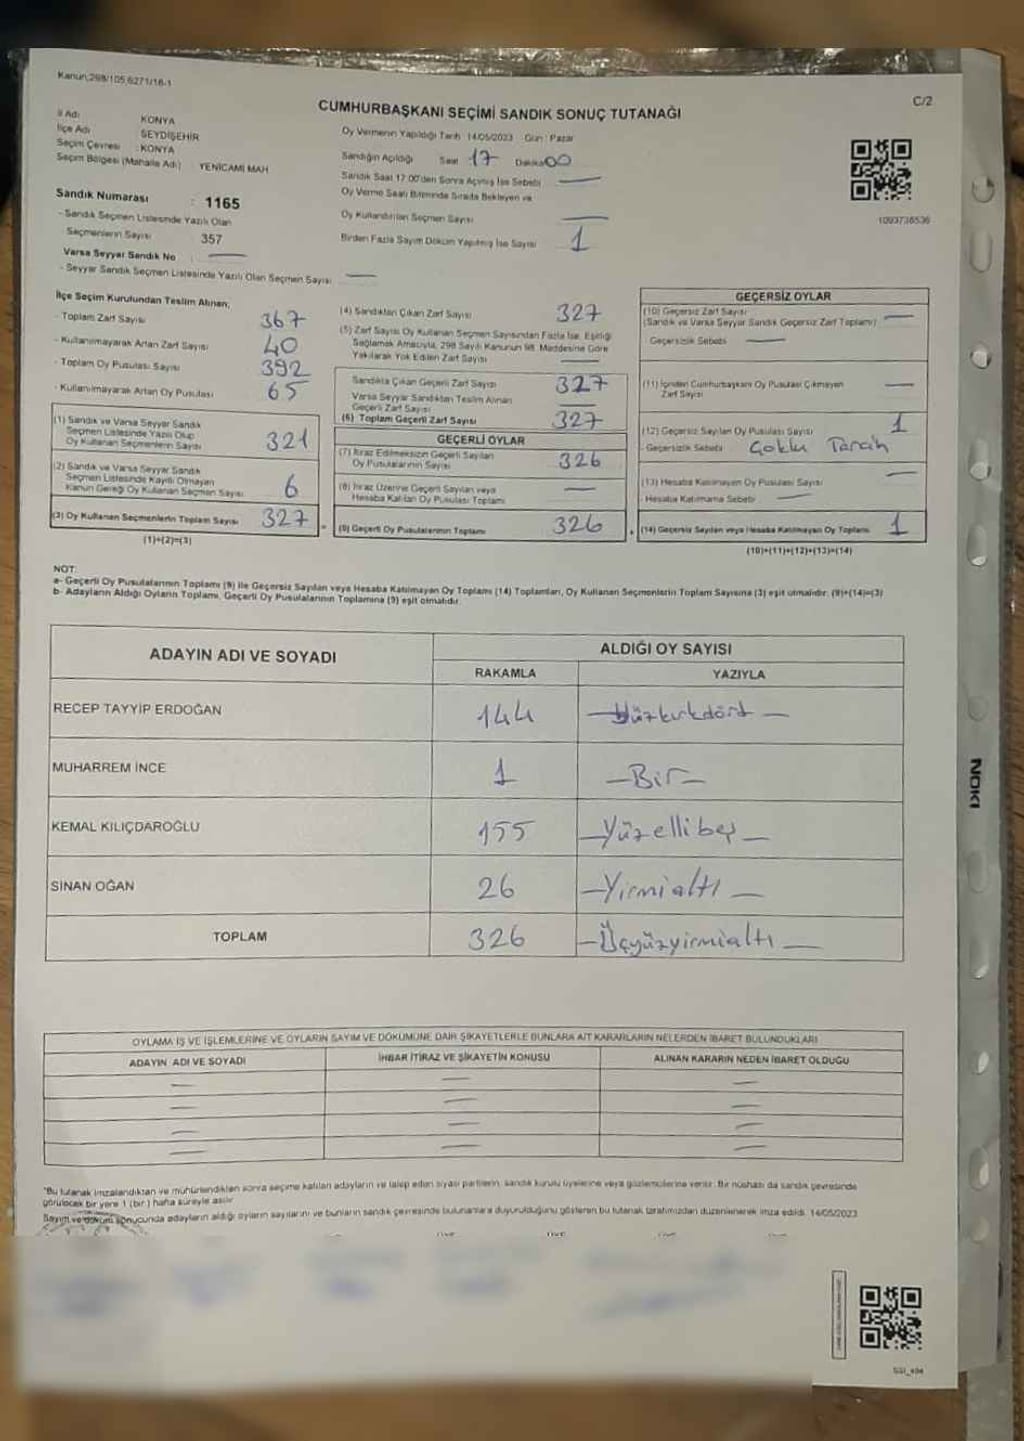 Kanun;298/105,6271/16-1
C/2
CUMHURBAŞKANI SEÇİMİ SANDIK SONUÇ TUTANAĞI
İl Adı KONYA
İlçe Adı SEYDİŞEHİR
Seçim Çevresi : KONYA
Seçim Bölgesi (Mahalle Adı) : YENİCAMİ MAH
Sandık Numarası : 1165
- Sandık Seçmen Listesinde Yazılı Olan
Seçmenlerin Sayısı 357
Varsa Seyyar Sandık No :
- Seyyar Sandık Seçmen Listesinde Yazılı Olan Seçmen Sayısı :
Oy Vermenin Yapıldığı Tarih 14/05/2023 Gün : Pazar
Sandığın Açıldığı Saat 17 Dakika 00
Sandık Saat 17.00'den Sonra Açılmış İse Sebebi
Oy Verme Saati Bitiminde Sırada Bekleyen ve
Oy Kullandırılan Seçmen Sayısı
Birden Fazla Sayım Döküm Yapılmış İse Sayısı 1
1093736536
İlçe Seçim Kurulundan Teslim Alınan;
- Toplam Zarf Sayısı 367
- Kullanılmayarak Artan Zarf Sayısı 40
- Toplam Oy Pusulası Sayısı 392
- Kullanılmayarak Artan Oy Pusulası 65
(1) Sandık ve Varsa Seyyar Sandık
Seçmen Listesinde Yazılı Olup
Oy Kullanan Seçmenlerin Sayısı 321
(2) Sandık ve Varsa Seyyar Sandık
Seçmen Listesinde Kayıtlı Olmayan
Kanun Gereği Oy Kullanan Seçmen Sayısı 6
(3) Oy Kullanan Seçmenlerin Toplam Sayısı 327
(1)+(2)=(3)
(4) Sandıktan Çıkan Zarf Sayısı 327
(5) Zarf Sayısı Oy Kullanan Seçmen Sayısından Fazla İse, Eşitliği
Sağlamak Amacıyla, 298 Sayılı Kanunun 98. Maddesine Göre
Yakılarak Yok Edilen Zarf Sayısı
Sandıkta Çıkan Geçerli Zarf Sayısı 327
Varsa Seyyar Sandıktan Teslim Alınan
Geçerli Zarf Sayısı
(6) Toplam Geçerli Zarf Sayısı 327
GEÇERLİ OYLAR
(7) İtiraz Edilmeksizin Geçerli Sayılan
Oy Pusulalarının Sayısı 326
(8) İtiraz Üzerine Geçerli Sayılan veya
Hesaba Katılan Oy Pusulası Toplamı
(9) Geçerli Oy Pusulalarının Toplamı 326
GEÇERSİZ OYLAR
(10) Geçersiz Zarf Sayısı
(Sandık ve Varsa Seyyar Sandık Geçersiz Zarf Toplamı)
Geçersizlik Sebebi
(11) İçinden Cumhurbaşkanı Oy Pusulası Çıkmayan
Zarf Sayısı
(12) Geçersiz Sayılan Oy Pusulası Sayısı 1
- Geçersizlik Sebebi Çoklu Tercih
(13) Hesaba Katılmayan Oy Pusulası Sayısı
- Hesaba Katılmama Sebebi
(14) Geçersiz Sayılan veya Hesaba Katılmayan Oy Toplamı 1
(10)+(11)+(12)+(13)=(14)
NOT:
a- Geçerli Oy Pusulalarının Toplamı (9) ile Geçersiz Sayılan veya Hesaba Katılmayan Oy Toplamı (14) Toplamları, Oy Kullanan Seçmenlerin Toplam Sayısına (3) eşit olmalıdır. (9)+(14)=(3)
b- Adayların Aldığı Oyların Toplamı, Geçerli Oy Pusulalarının Toplamına (9) eşit olmalıdır.
ADAYIN ADI VE SOYADI
ALDIĞI OY SAYISI
RAKAMLA YAZIYLA
RECEP TAYYİP ERDOĞAN 144 Yüzkırkdört
MUHARREM İNCE 1 Bir
KEMAL KILIÇDAROĞLU 155 Yüzellibeş
SİNAN OĞAN 26 Yirmialtı
TOPLAM 326 Üçyüzyirmialtı
OYLAMA İŞ VE İŞLEMLERİNE VE OYLARIN SAYIM VE DÖKÜMÜNE DAİR ŞİKAYETLERLE BUNLARA AİT KARARLARIN NELERDEN İBARET BULUNDUKLARI
ADAYIN ADI VE SOYADI İHBAR İTİRAZ VE ŞİKAYETİN KONUSU ALINAN KARARIN NEDEN İBARET OLDUĞU
*Bu tutanak imzalandıktan ve mühürlendikten sonra seçime katılan adayların ve talep eden siyasi partilerin, sandık kurulu üyelerine veya gözlemcilerine verilir. Bir nüshası da sandık çevresinde
görülecek bir yere 1 (bir) hafta süreyle asılır.
Sayım ve döküm sonucunda adayların aldığı oyların sayılarını ve bunların sandık çevresinde bulunanlara duyurulduğunu gösteren bu tutanak tarafımızdan düzenlenerek imza edildi. 14/05/2023
NOKI